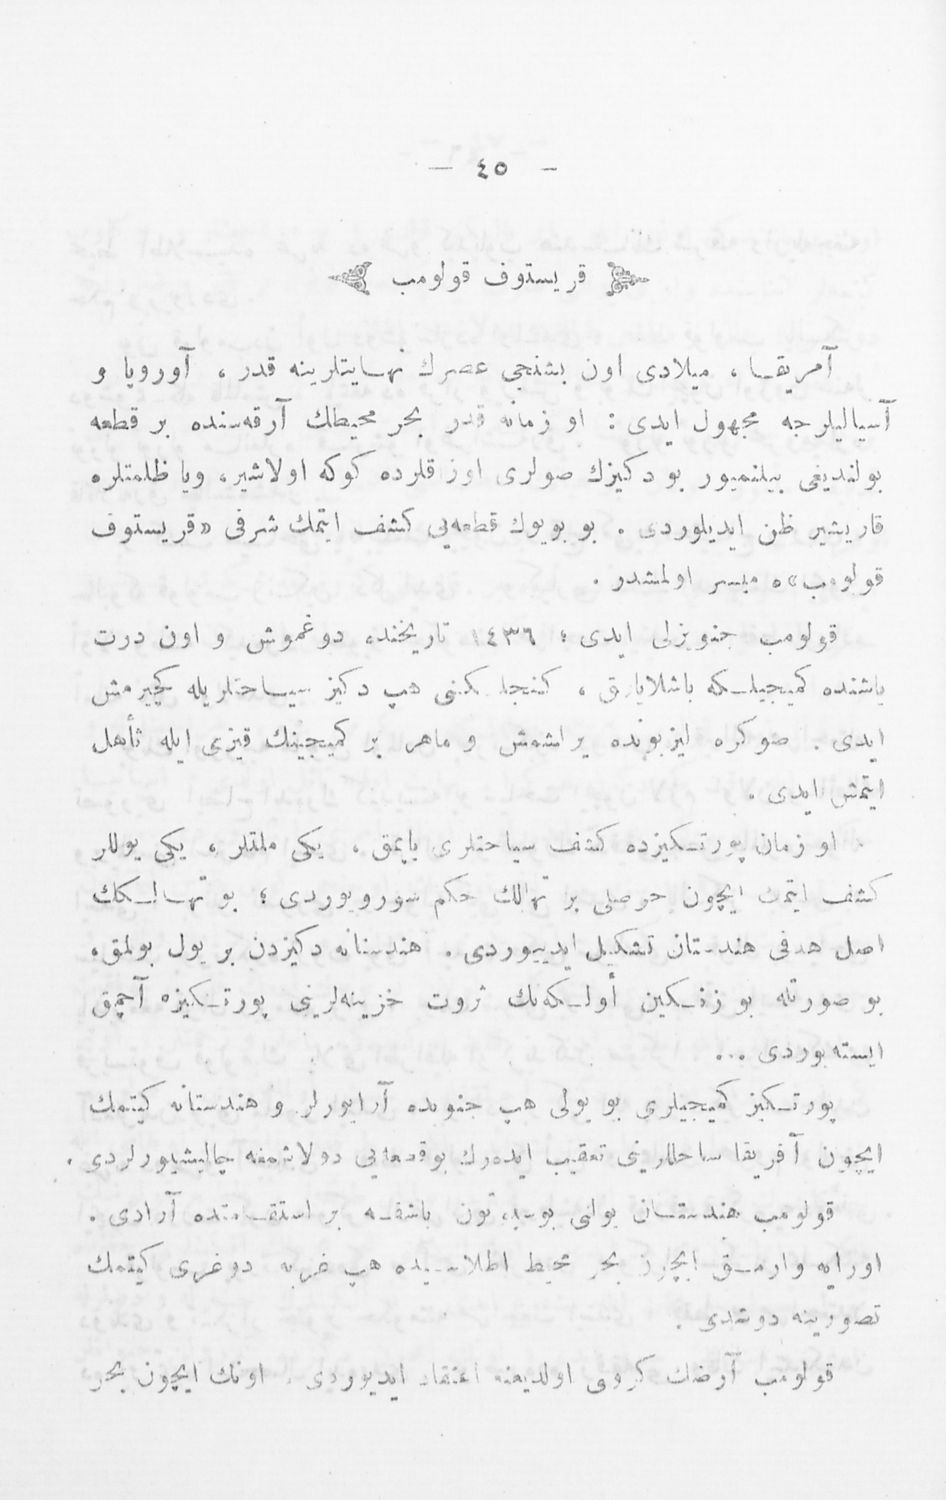 — ٤٥ —
قریستوف قولومب
آمریقا ، میلادی اون بشنجی عصرك نهایتلرینه قدر ، آوروپا و
آسیالیلرجه مجهول ایدی : او زمانه قدر بحر محیطك آرقه‌سنده بر قطعه
بولندیغی بیلنمیور بو دكیزك صولری اوزاقلرده كوكه اولاشیر، ویا ظلمتلره
قاریشیر ظن ایدیلوردی . بو بویوك قطعه‌یی كشف ایتمك شرفی «قریستوف
قولومب»ه میسر اولمشدر .
قولومب جنویزلی ایدی ؛ ١٤٣٦ تاریخنده دوغمش و اون درت
یاشنده كمیجیلكه باشلایارق ، كنجلكنی هپ دكیز سیاحتلریله كچیرمش
ایدی . صوكره لیزبونده یرلشمش و ماهر بر كمیجینك قیزی ایله تأهل
ایتمش ایدی .
او زمان پورتكیزده كشف سیاحتلری یاپمق ، یكی ملتلر ، یكی یوللر
كشف ایتمك ایچون حرصلی بر تهالك حكم سورویوردی ؛ بو تهالكك
اصل هدفی هندستان تشكیل ایدییوردی . هندستانه دكیزدن بر یول بولمق،
بو صورتله بو زنكین اولكه‌نك ثروت خزینه‌لرینی پورتكیزه آچمق
ایسته‌یوردی ...
پورتكیز كمیجیلری بو یولی هپ جنوبده آرایورلر و هندستانه كیتمك
ایچون آفریقا ساحللرینی تعقیب ایده‌رك بو قطعه‌یی دولاشمغه چالیشیورلردی .
قولومب هندستان یولنی بوسبتون باشقه بر استقامتده آرادی .
اورایه وارمق ایچون بحر محیط اطلاسیده هپ غربه دوغری كیتمك
تصورینه دوشدی .
قولومب آرضك كروی اولدیغنه اعتقاد ایدیوردی . اونك ایچون بحر